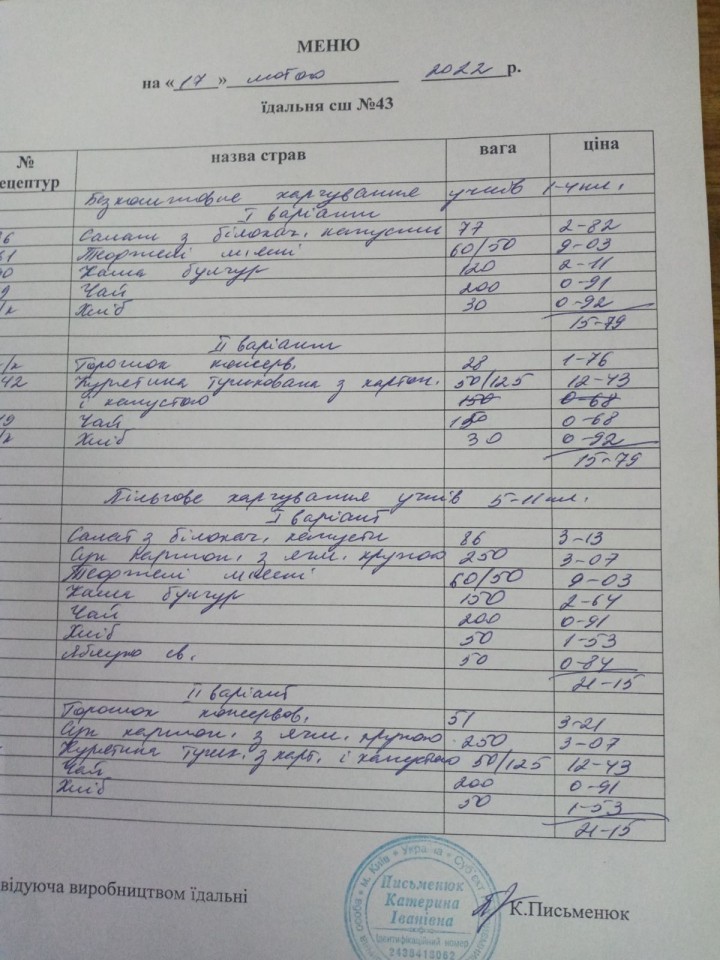 МЕНЮ
на «17» лютого 2022 р.
їдальня сш №43
№ рецептур назва страв вага ціна
Безкоштовне харчування учнів 1-4 кл.
I варіант
Салат з білокач. капусти 77 2-82
Тефтелі мясні 60/50 9-03
Каша булгур 120 2-11
Чай 200 0-91
Хліб 30 0-92
15-79
II варіант
Горошок консерв. 28 1-76
42 Курятина тушкована з картоп. 50/125 12-43
і капустою 150 0-68
Чай 150 0-68
Хліб 30 0-92
15-79
Пільгове харчування учнів 5-11 кл.
I варіант
Салат з білокач. капусти 86 3-13
Суп картоп. з ячм. крупою 250 3-07
Тефтелі мясні 60/50 9-03
Каша булгур 150 2-64
Чай 200 0-91
Хліб 50 1-53
Яблуко св. 50 0-84
21-15
II варіант
Горошок консервов. 51 3-21
Суп картоп. з ячм. крупою 250 3-07
Курятина тушк. з карт. і капустою 50/125 12-43
Чай 200 0-91
Хліб 50 1-53
21-15
відуюча виробництвом їдальні
К.Письменюк
м. Київ * Україна * Суб'єкт
Письменюк
Катерина
Іванівна
Ідентифікаційний номер